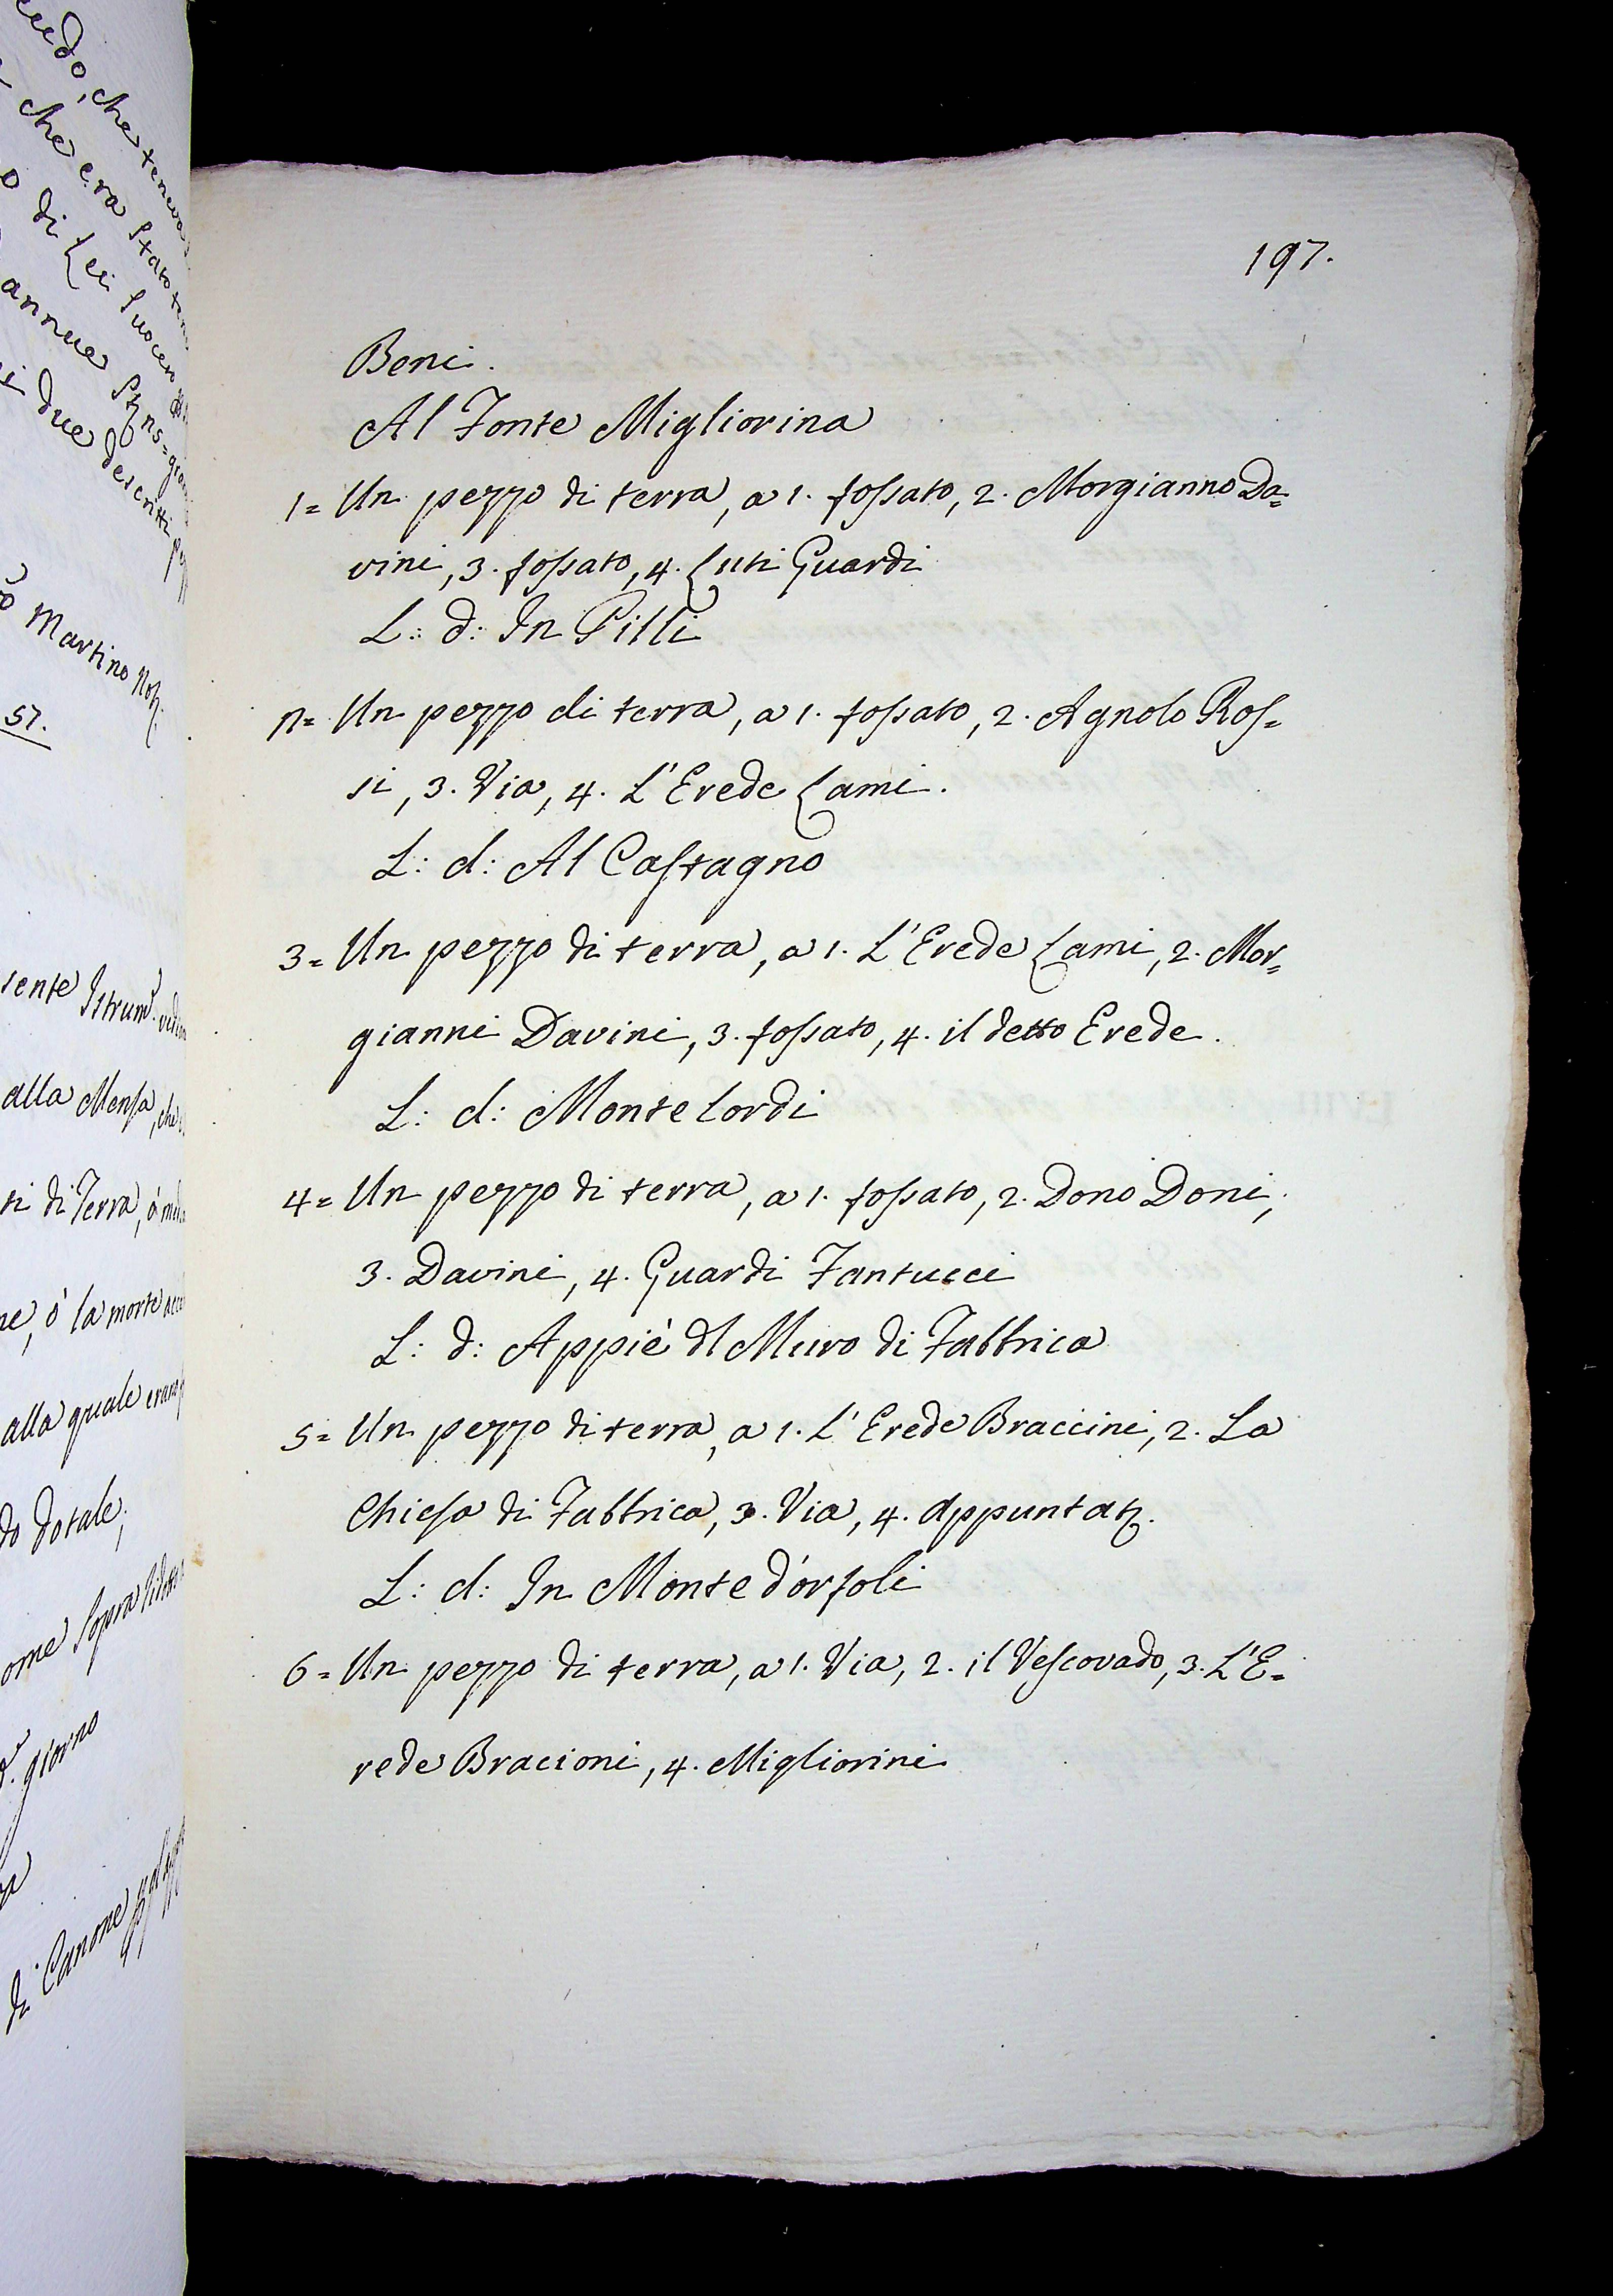 uedo, che teneva
che era stato
o di Lei Suocero
annue
i due descritti
Martino Not
57.
sente Istrum
alla Mensa, che
ti di Terra, ò
ne, ò la morte
alla quale erano
do dotale;
ome sopra
giorno
di Canone
197.
Beni.
Al Fonte Migliorina
1= Un pezzo di terra, a 1. fossato, 2. Morgianno Da=
vini, 3. fossato, 4. Luti Guardi
L: d: In Pilli
n= Un pezzo di terra, a 1. fossato, 2. Agnolo Ros=
si, 3. Via, 4. L'Erede Lami.
L: d: Al Castagno
3= Un pezzo di terra, a 1. L'Erede Lami, 2. Mor=
gianni Davini, 3. fossato, 4. il detto Erede.
L: d: Monte lordi
4= Un pezzo di terra, a 1. fossato, 2. Dono Doni,
3. Davini, 4. Guardi Fantucci
L: d: Appiè dl Muro di Fabbrica
5= Un pezzo di terra, a 1. L'Erede Braccini, 2. La
Chiesa di Fabbrica, 3. Via, 4. Appuntat.
L: d: In Monte d'orsoli
6= Un pezzo di terra, a 1. Via, 2. il Vescovado, 3. L'E=
rede Bracioni, 4. Migliorini